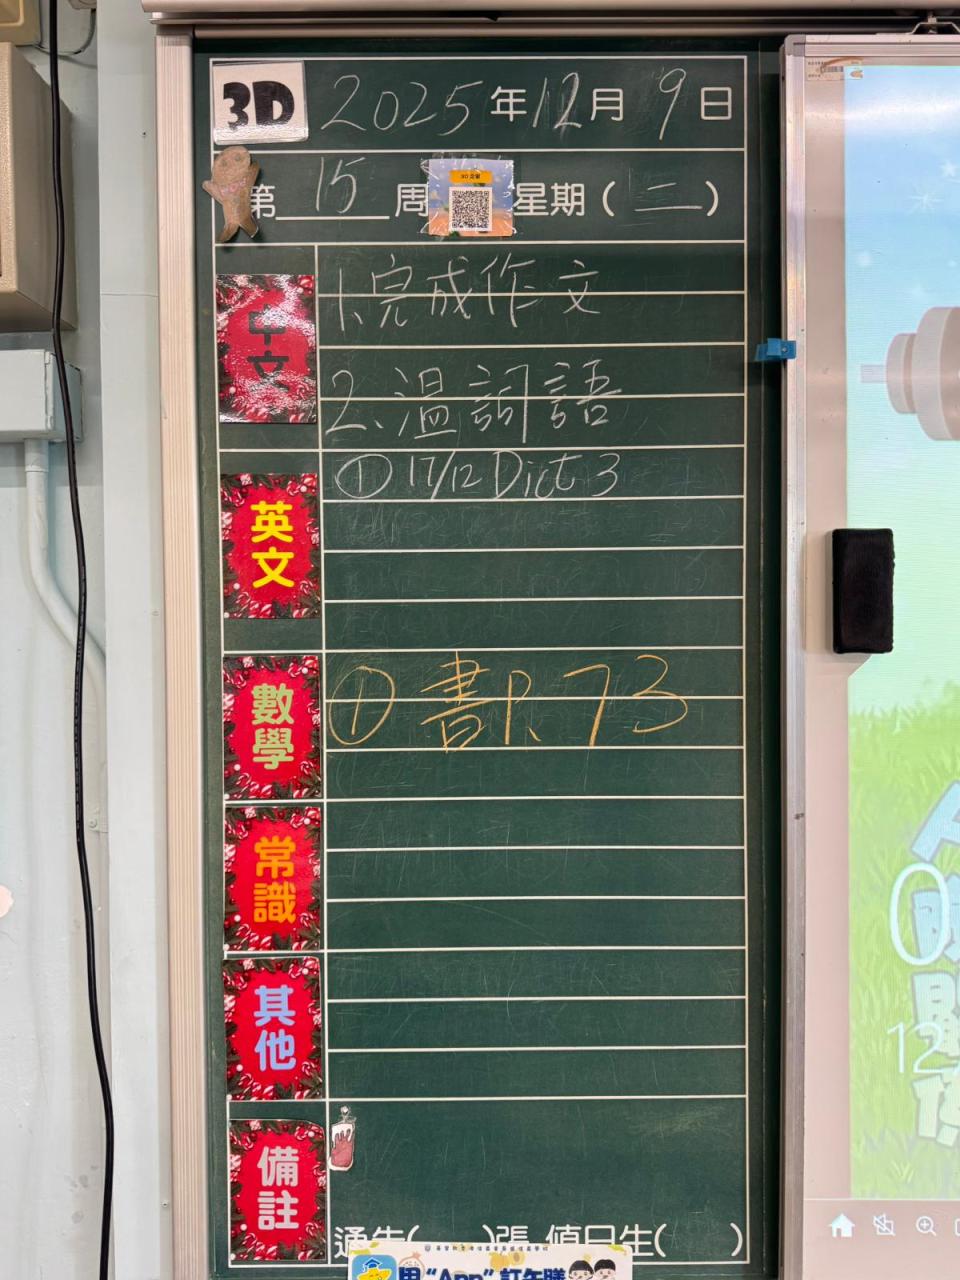 3D 2025年12月9日
第15周 星期(二)
中文
1.完成作文
2.溫詞語
英文
① 17/12 Dict 3
數學
① 書P.73
常識
其他
備註
通告( )張 值日生( )
用“App”訂午膳